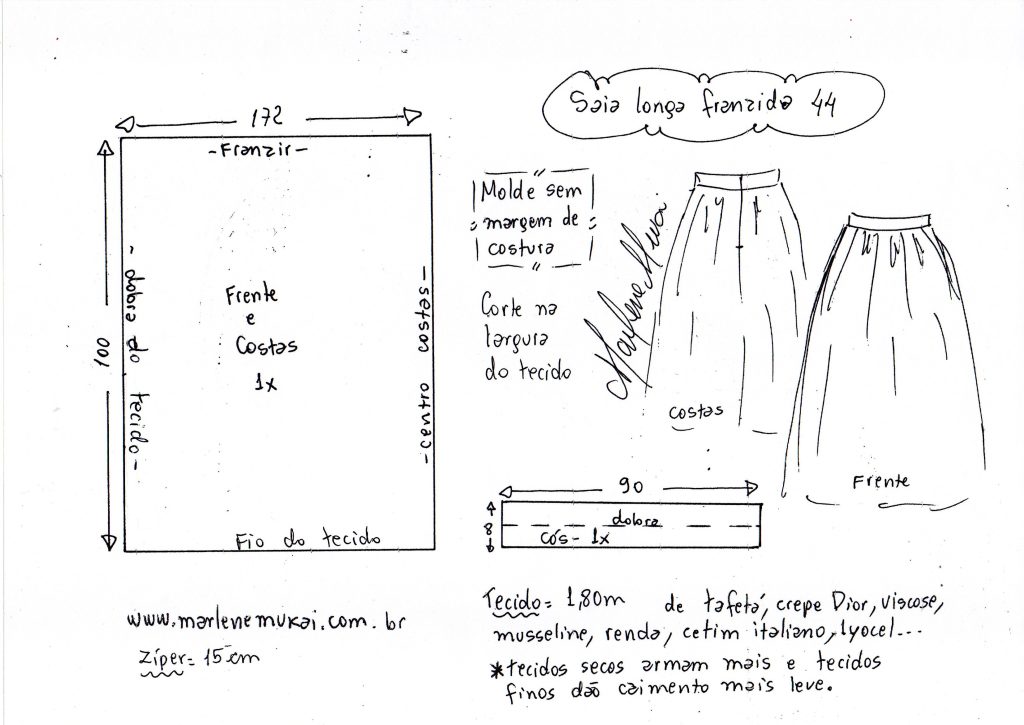 Saia longa franzida 44
172
- Franzir -
100
- dobra do tecido -
Frente
e
Costas
1x
- centro costas -
Fio do tecido
Molde sem
margem de
costura
Corte na
largura
do tecido
Marlene Mukai
costas
Frente
90
8
dobra
Cós - 1x
www.marlenemukai.com.br
Zíper = 15cm
Tecido = 1,80m de tafetá, crepe Dior, viscose,
musseline, renda, cetim italiano, lyocel...
*tecidos secos armam mais e tecidos
finos dão caimento mais leve.